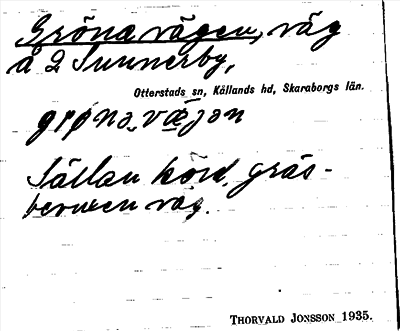 Gröna vägen, väg
å 2 Sunnerby,
Otterstads sn, Kållands hd, Skaraborgs län.
grønə væ̣jən
Sällan körd, gräs-
beruxen väg.
THORVALD JONSSON 1935.